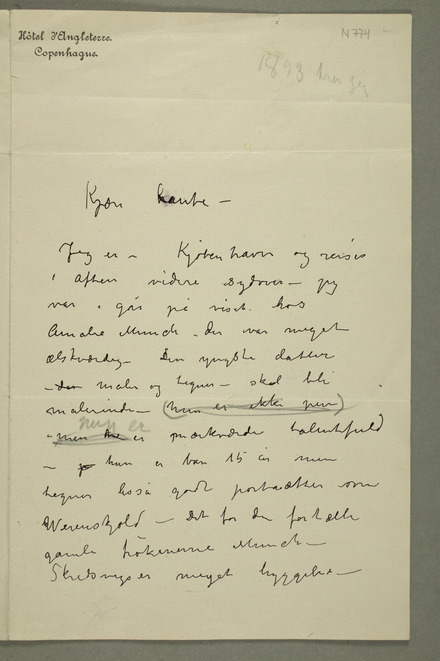 Hôtel d'Angleterre.
Copenhague.
N 774
Kjære tante —
Jeg er – Kjøbenhavn og reiser
i aften videre sydover – jeg
var i går på visit hos
Amalie Munch – der var meget
elskværdig – Den yngste datter
– der maler og tegner – skal bli
malerinde – (hun er ikke pen)
hun er
– men hun er mærkværdig talentfuld
– hun er bar 15 år men
tegner ligeså godt portrætter som
Werenskjold – Det får du fortælle
gamle frøknerne Munch –
Skredsvigs er meget hyggelige –